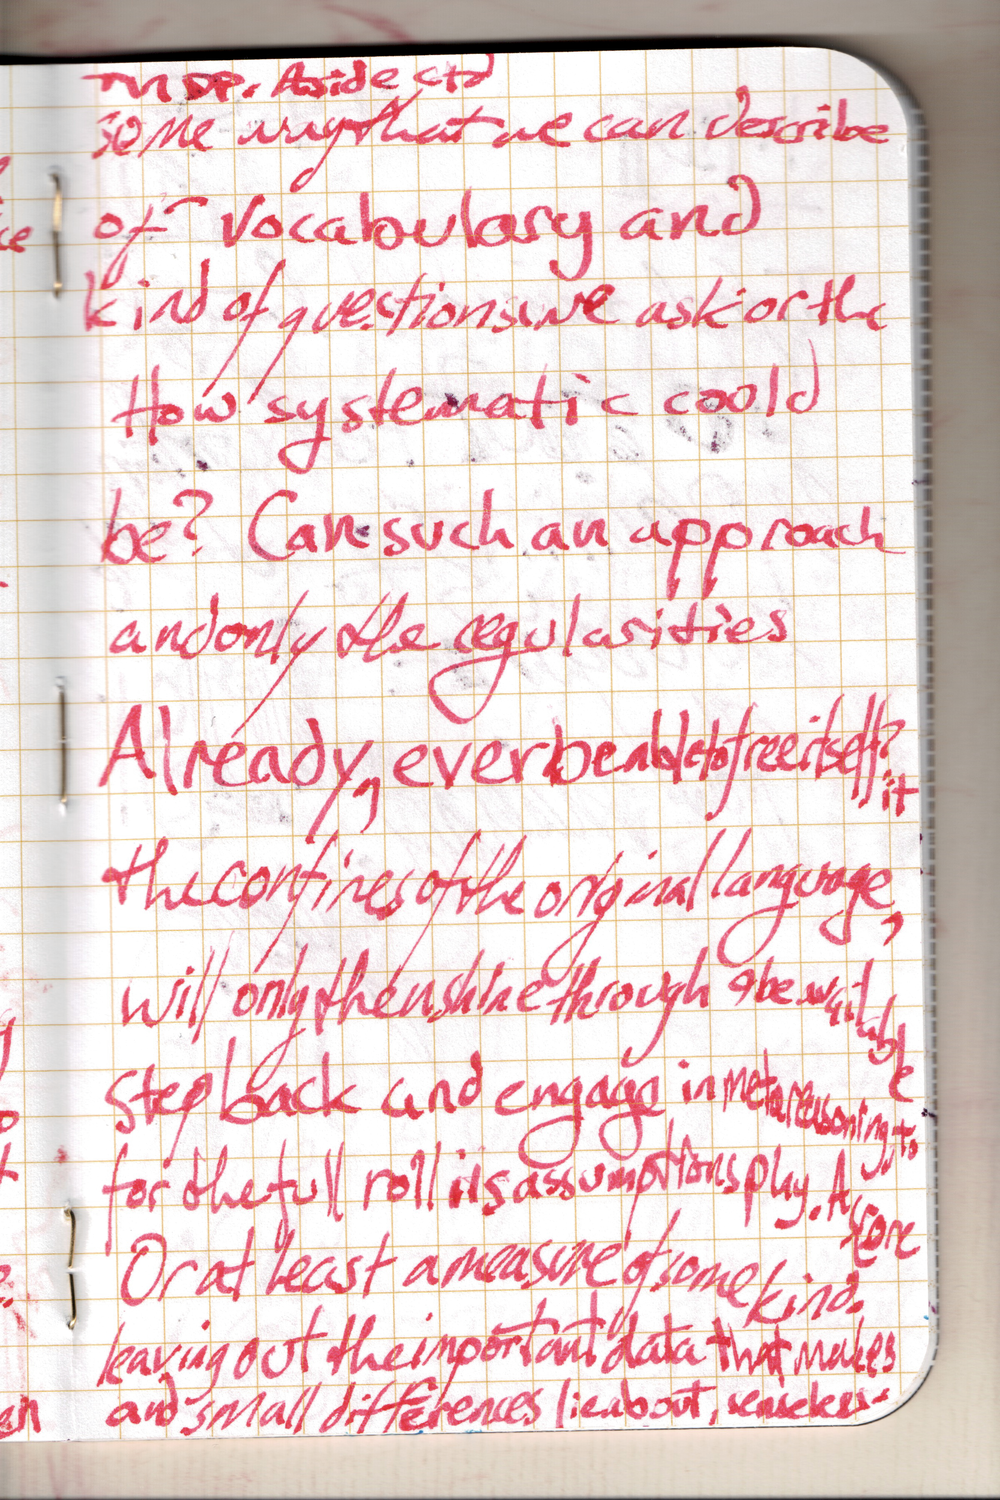 MDP. Aside ctd
some way that we can describe
of vocabulary and
kind of questions we ask or the
How systematic could
be? Can such an approach
and only the regularities
Already, ever be able to free itself?
it
the confines of the original language,
will only then shine through & be available
step back and engage in metareasoning to
for the full roll its assumptions play. A
score
Or at least a measure of some kind.
leaving out the important data that makes
and small differences lie about, senseless-